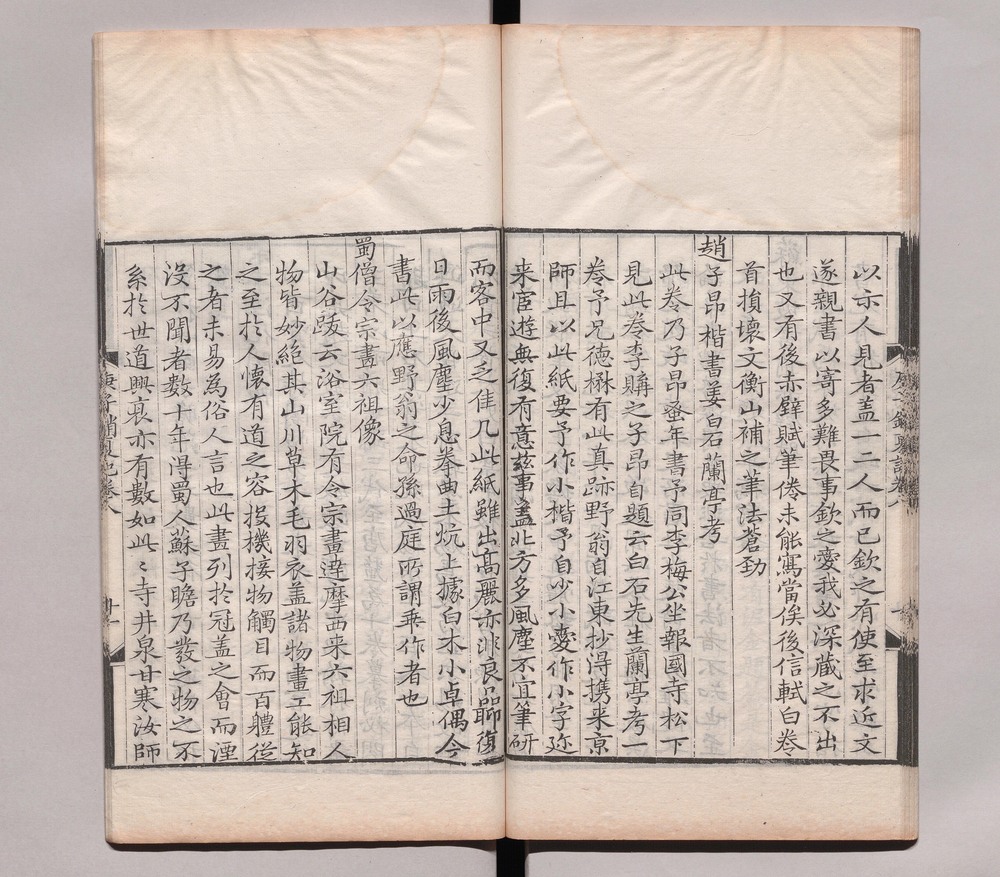 以示人見者盖一二人而已欽之有使至求近文
遂親書以寄多難畏事欽之愛我必深藏之不出
也又有後赤壁賦筆倦未能寫當俟後信軾白卷
首損壞文衡山補之筆法蒼勁
趙子昂楷書姜白石蘭亭考
此卷乃子昂蚤年書予同李梅公坐報國寺松下
見此卷李購之子昂自題云白石先生蘭亭考一
卷予兄德楙有此真跡野翁自江東抄得攜来京
師且以此紙要予作小楷予自少小愛作小字迩
来宦遊無復有意茲事盖北方多風塵不宜筆研
而客中又乏佳几此紙雖出高麗亦非良品聊復
日雨後風塵少息拳曲土炕上據白木小卓偶今
書此以應野翁之命孫過庭所謂乖作者也
蜀僧令宗畫六祖像
山谷跋云浴室院有令宗畫達摩西来六祖相人
物皆妙絶其山川草木毛羽衣盖諸物畫工能知
之至於人懷有道之容投機接物觸目而百體從
之者未易為俗人言也此畫列於冠盖之會而湮
沒不聞者数十年得蜀人蘇子瞻乃發之物之不
系於世道興衰亦有數如此〻寺井泉甘寒汝師
庚子銷夏記卷八